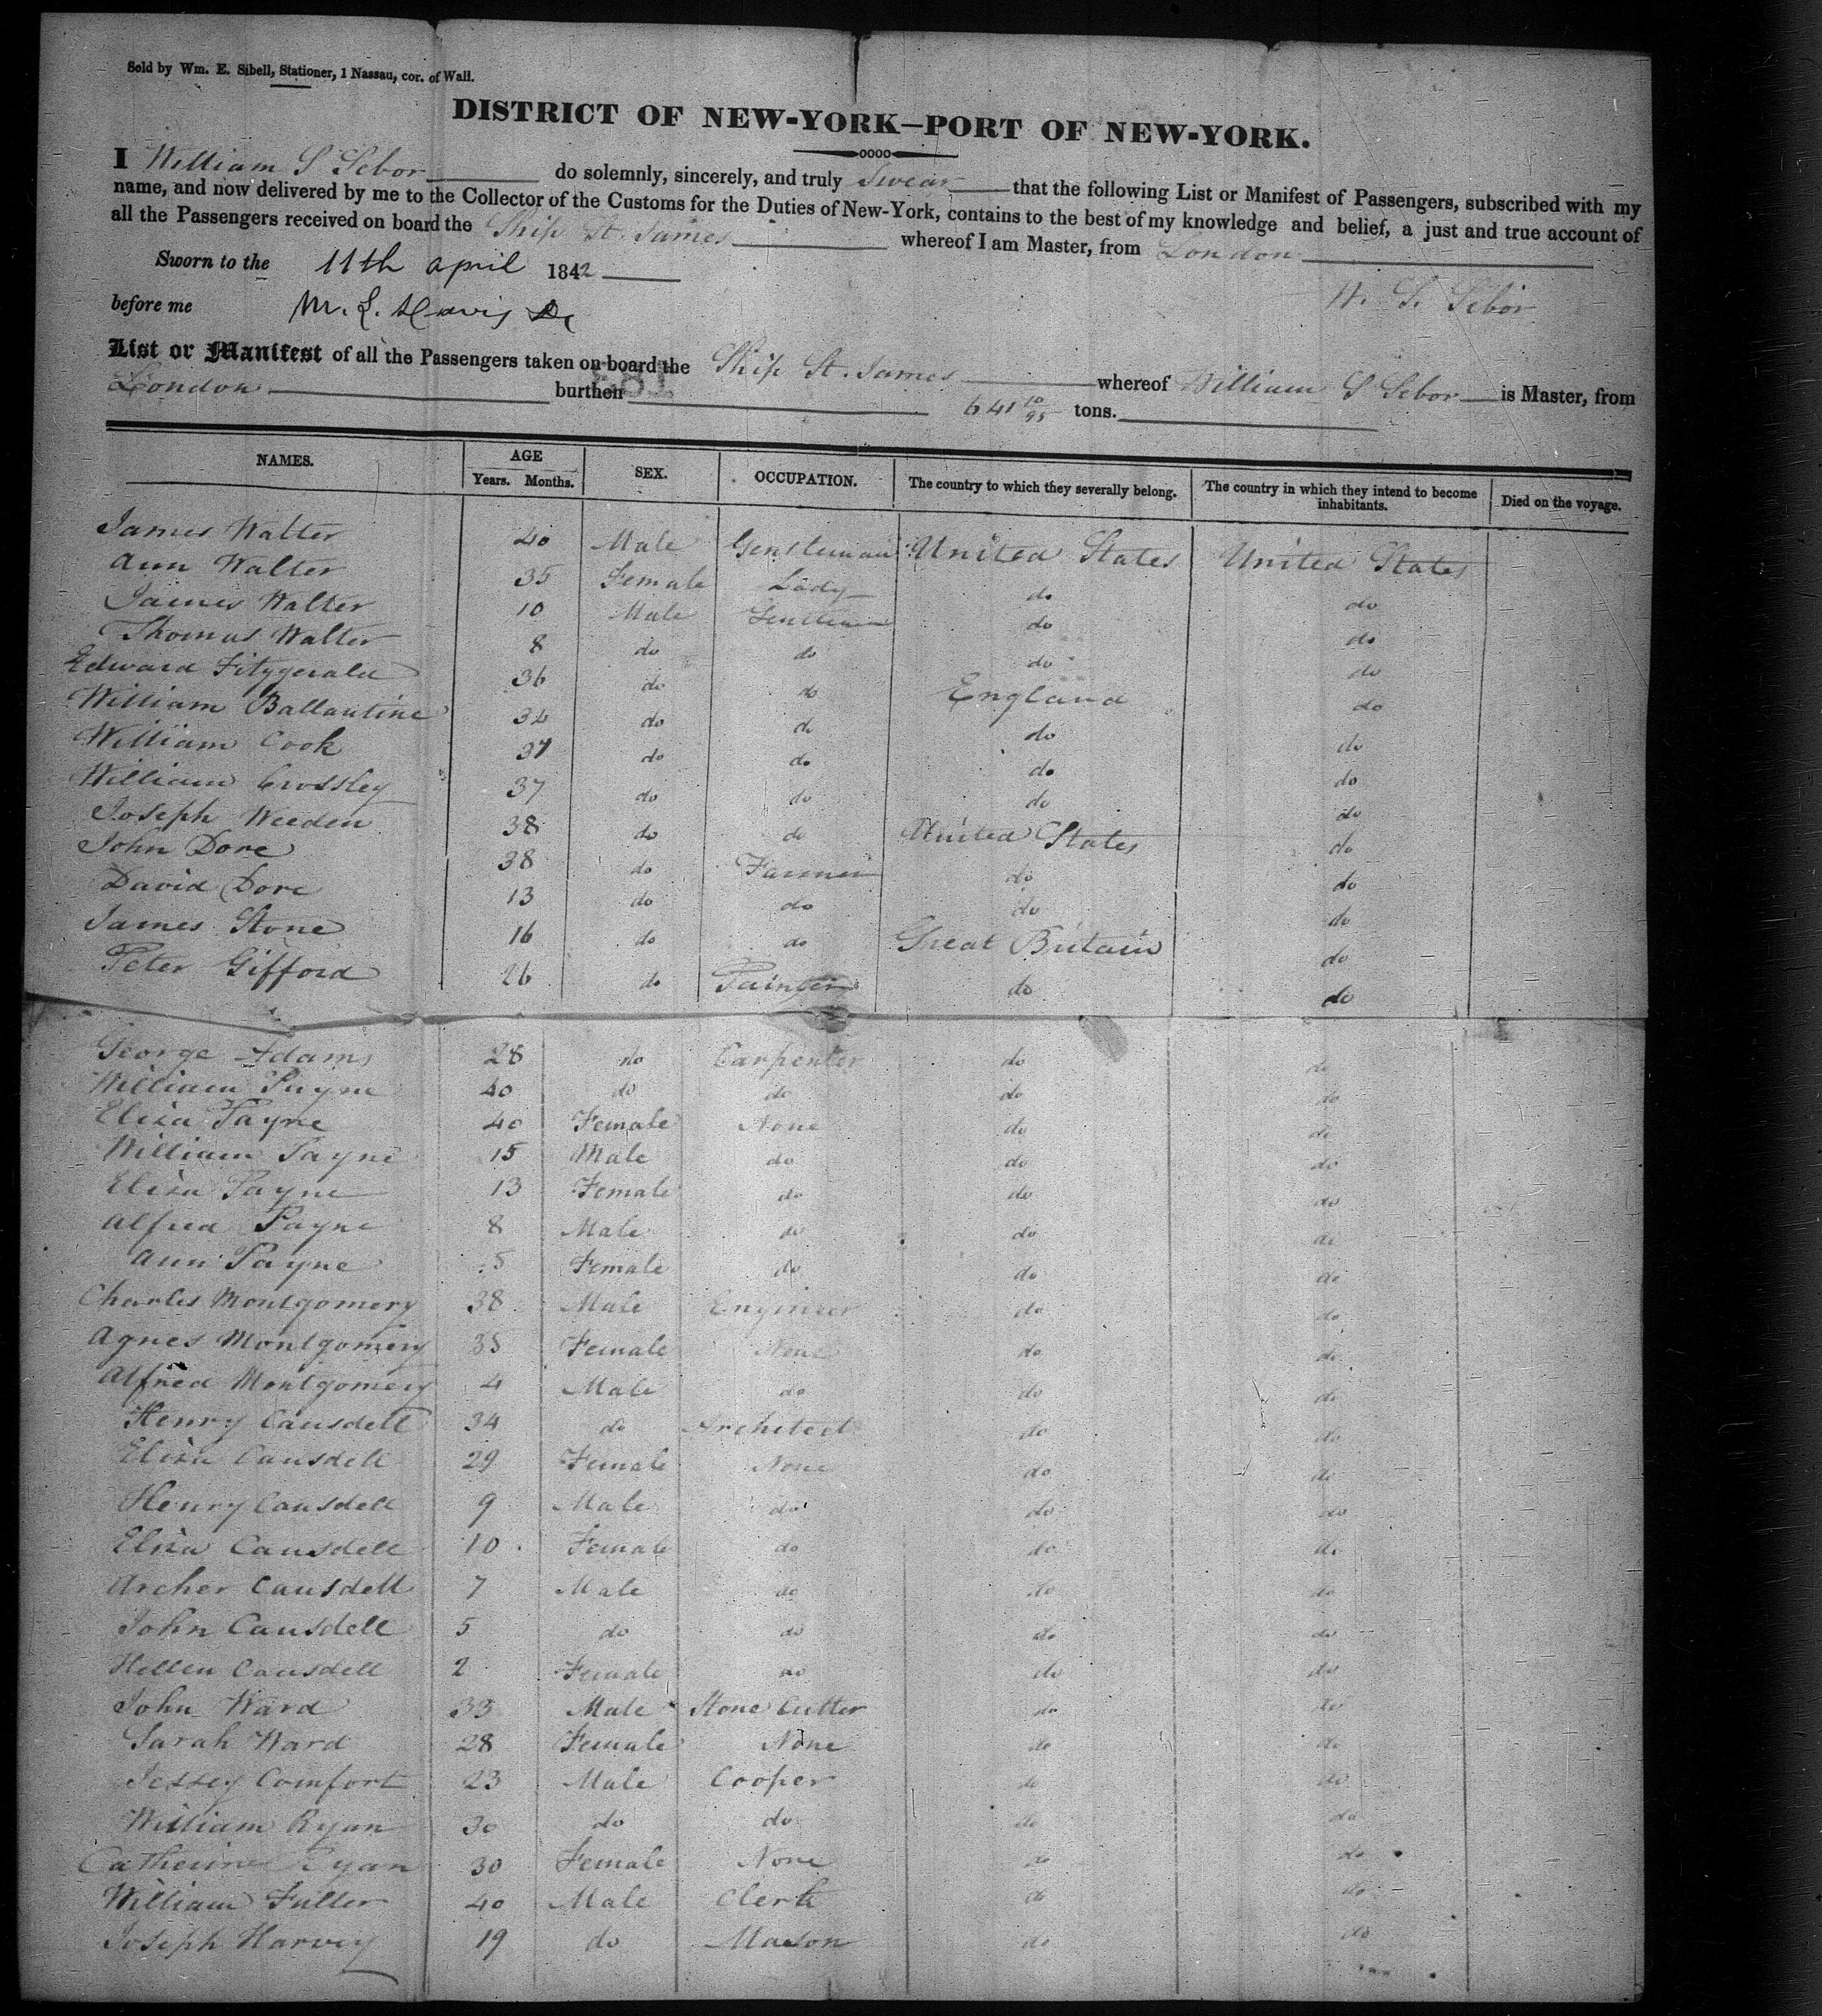 Sold by Wm. E. Sibell, Stationer, 1 Nassau, cor. of Wall.
DISTRICT OF NEW-YORK—PORT OF NEW-YORK.
I William S Sebor do solemnly, sincerely, and truly Swear that the following List or Manifest of Passengers, subscribed with my
name, and now delivered by me to the Collector of the Customs for the Duties of New-York, contains to the best of my knowledge and belief, a just and true account of
all the Passengers received on board the Ship St. James whereof I am Master, from London
Sworn to the 11th April 1842
W. S. Sebor
before me M. L. Davis
List or Manifest of all the Passengers taken on board the Ship St. James whereof William S Sebor is Master, from
London burthen 641 10/95 tons.
NAMES. AGE Years. Months. SEX. OCCUPATION. The country to which they severally belong. The country in which they intend to become inhabitants. Died on the voyage.
James Walter 40 Male Gentleman United States United States
Ann Walter 35 Female Lady do do
James Walter 10 Male Gentleman do do
Thomas Walter 8 do do do do
Edward Fitzgerald 36 do do England do
William Ballantine 34 do do do do
William Cook 37 do do do do
William Crossley 37 do do do do
Joseph Weeden 38 do do United States do
John Dore 38 do Farmer do do
David Dore 13 do do do do
James Stone 16 do do Great Britain do
Peter Gifford 26 do Painter do do
George Adams 28 do Carpenter do do
William Payne 40 do do do do
Eliza Payne 40 Female None do do
William Payne 15 Male do do do
Eliza Payne 13 Female do do do
Alfred Payne 8 Male do do do
Ann Payne 5 Female do do do
Charles Montgomery 38 Male Engineer do do
Agnes Montgomery 35 Female None do do
Alfred Montgomery 4 Male do do do
Henry Causdell 34 do Architect do do
Eliza Causdell 29 Female None do do
Henry Causdell 9 Male do do do
Eliza Causdell 10 Female do do do
Archer Causdell 7 Male do do do
John Causdell 5 do do do do
Hellen Causdell 2 Female do do do
John Ward 33 Male Stone Cutter do do
Sarah Ward 28 Female None do do
Jessey Comfort 23 Male Cooper do do
William Ryan 30 do do do do
Catherine Ryan 30 Female None do do
William Fuller 40 Male Clerk do do
Joseph Harvey 19 do Mason do do